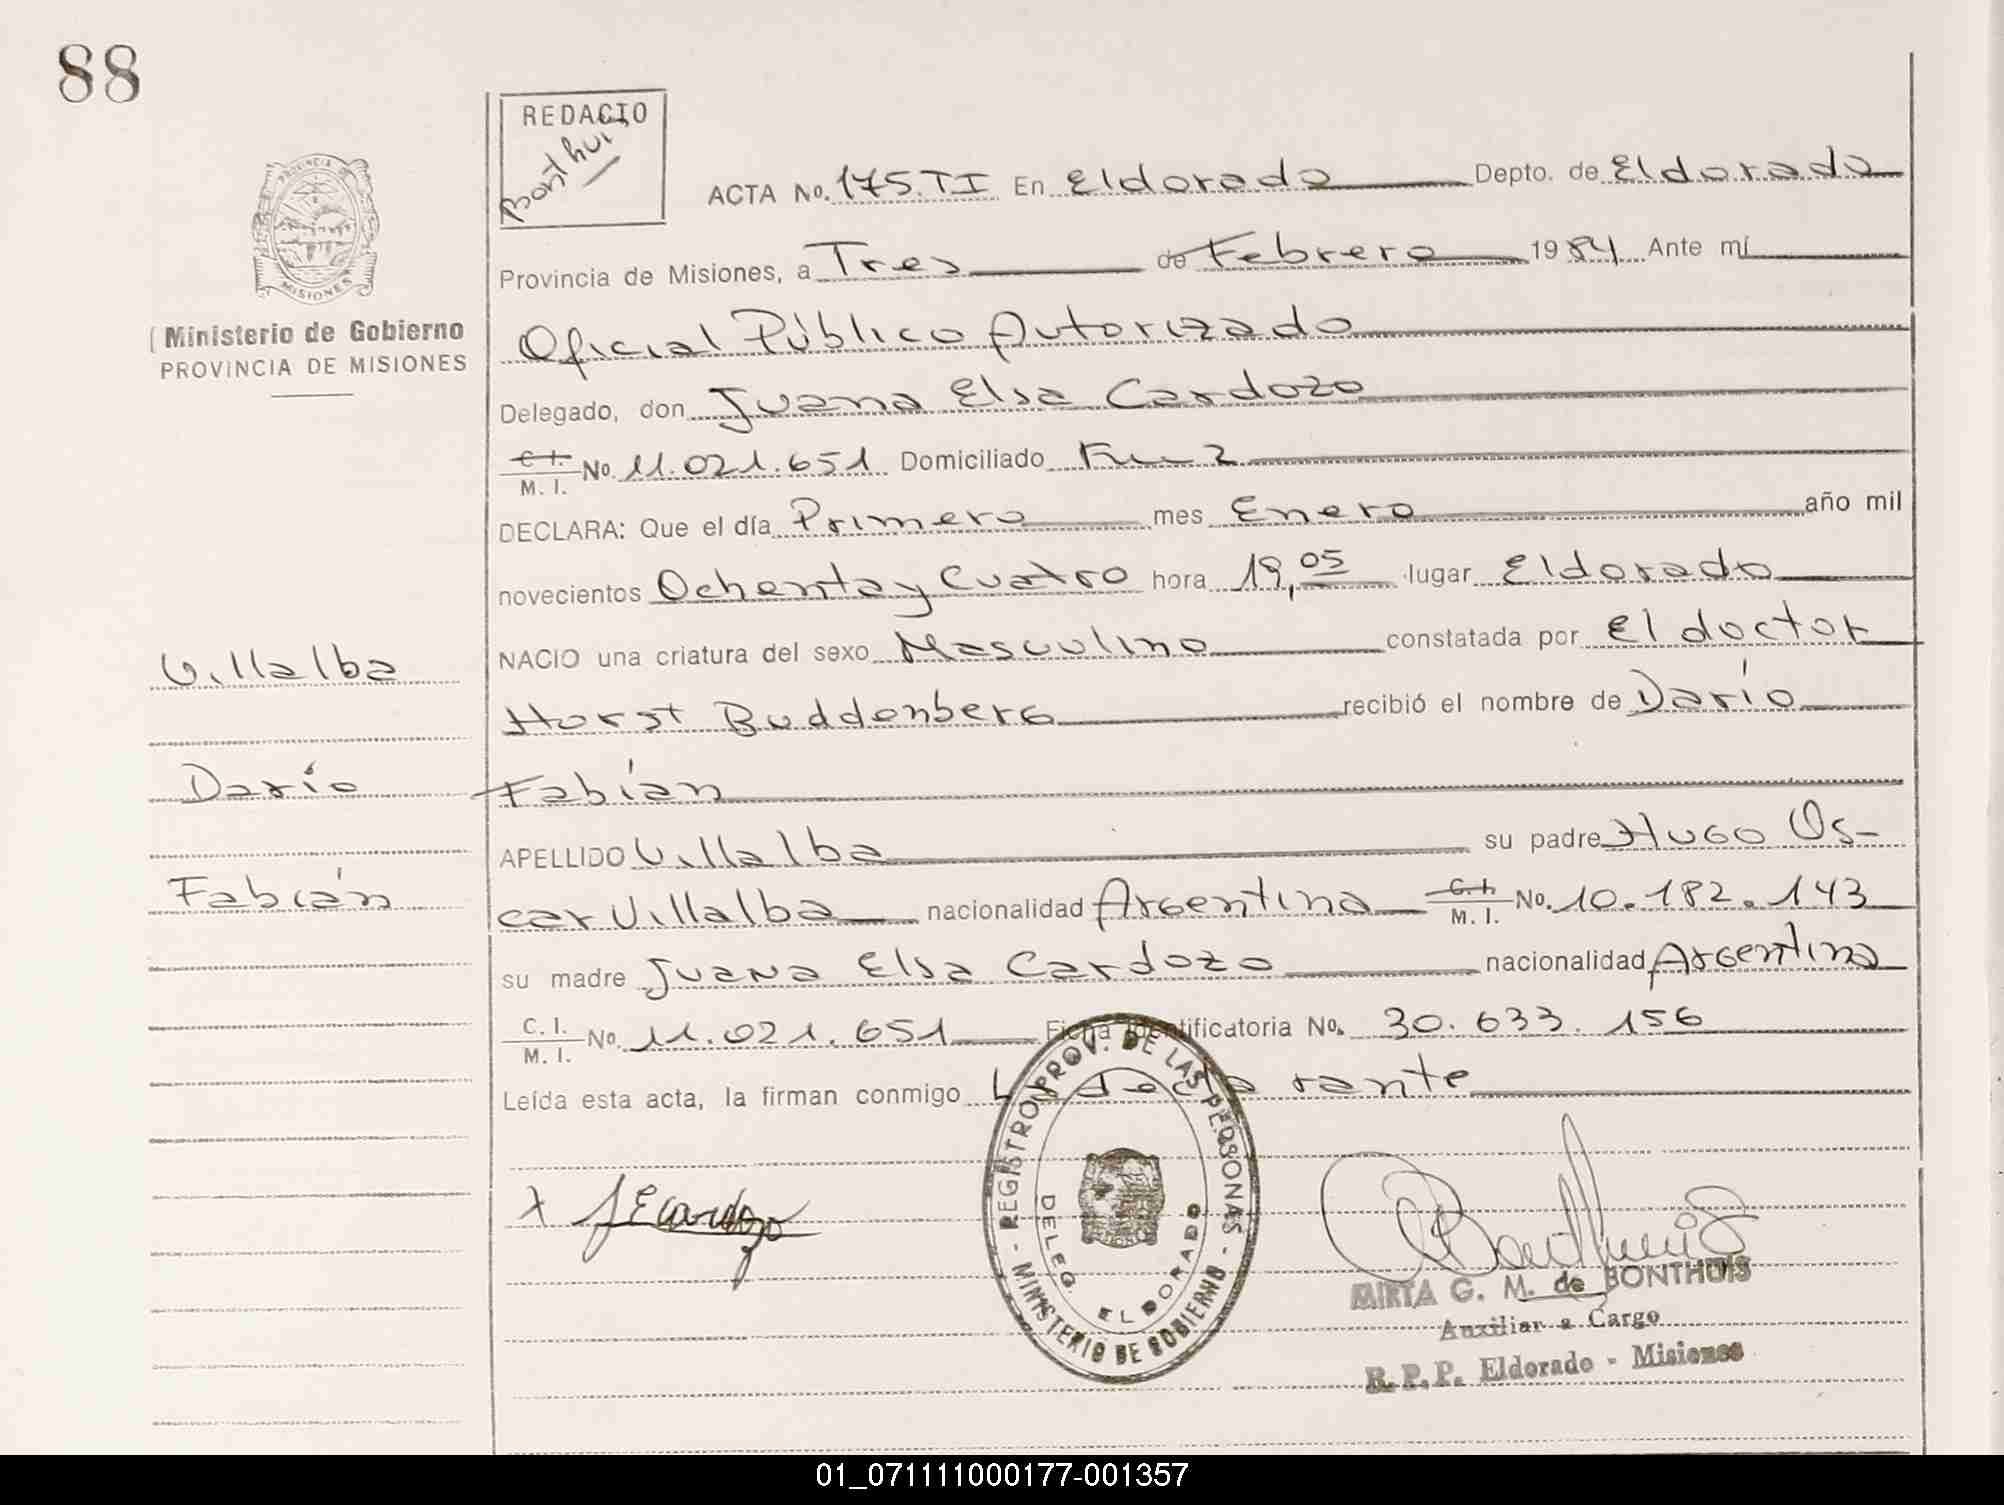 88
REDACIO
Bonthuis
PROVINCIA
MISIONES
Ministerio de Gobierno
PROVINCIA DE MISIONES
ACTA No. 175.TI En Eldorado Depto. de Eldorado
Provincia de Misiones, a Tres de Febrero 1984 Ante mí
Oficial Público Autorizado
Delegado, don Juana Elsa Cardozo
C.I. M.I. No. 11.021.651 Domiciliado Km 2
DECLARA: Que el día Primero mes Enero año mil
novecientos Ochenta y Cuatro hora 19,05 lugar Eldorado
NACIO una criatura del sexo Masculino constatada por El doctor
Horst Buddenberg recibió el nombre de Darío
Fabián
APELLIDO Villalba su padre Hugo Os-
car Villalba nacionalidad Argentina C.I. M.I. No. 10.182.143
su madre Juana Elsa Cardozo nacionalidad Argentina
C.I. M.I. No. 11.021.651 Ficha Identificatoria No. 30.633.156
Leída esta acta, la firman conmigo La declarante
Villalba
Darío
Fabián
x J E Cardozo
REGISTRO PROV. DE LAS PERSONAS - MINISTERIO DE GOBIERNO -
DELEG. ELDORADO
Bonthuis
MIRTA G. M. de BONTHUIS
Auxiliar a Cargo
R.P.P. Eldorado - Misiones
01_071111000177-001357